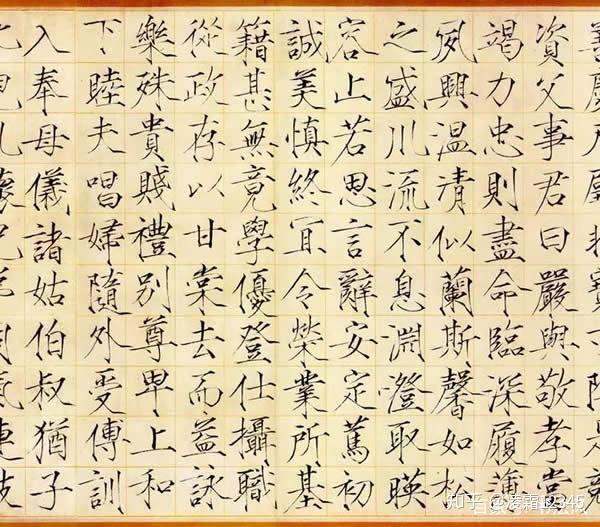 資父事君曰嚴與敬孝當
竭力忠則盡命臨深履薄
夙興温清似蘭斯馨如松
之盛川流不息淵澄取暎
容止若思言辭安定篤初
誠美慎終宜令榮業所基
籍甚無竟學優登仕攝職
從政存以甘棠去而益詠
樂殊貴賤禮別尊卑上和
下睦夫唱婦隨外受傅訓
入奉母儀諸姑伯叔猶子
知乎 @凌霜12345